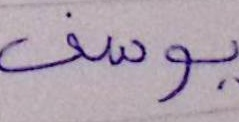 يوسف